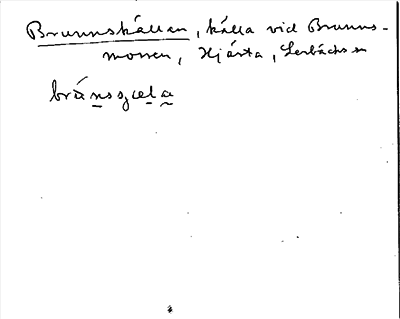 Brunnskällan, källa vid Brunns-
mossen, Hjärta, Lerbäcks sn
brúnsszela